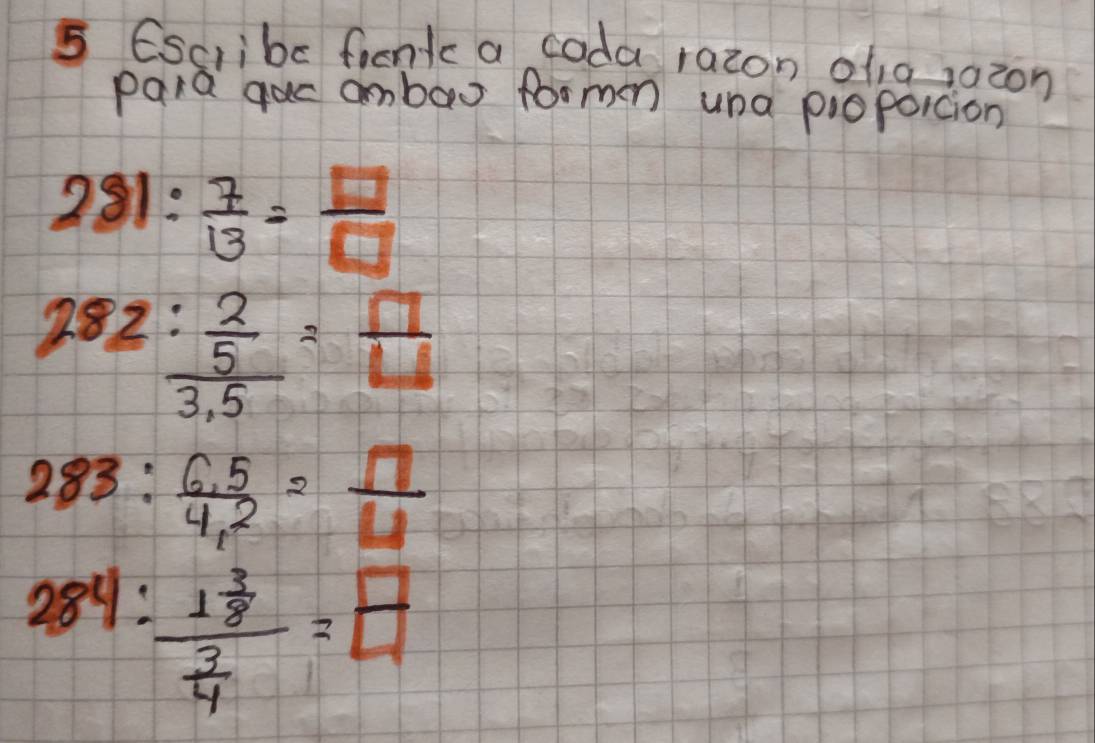 5 Escribe frente a cada razon otra razon
para que ambas formen una proporcion
281: 7/13 = □/□
282: (2/5)/3,5 = □/□
283: 6,5/4,2 = □/□
284: (1 3/8)/(3/4) = □/□